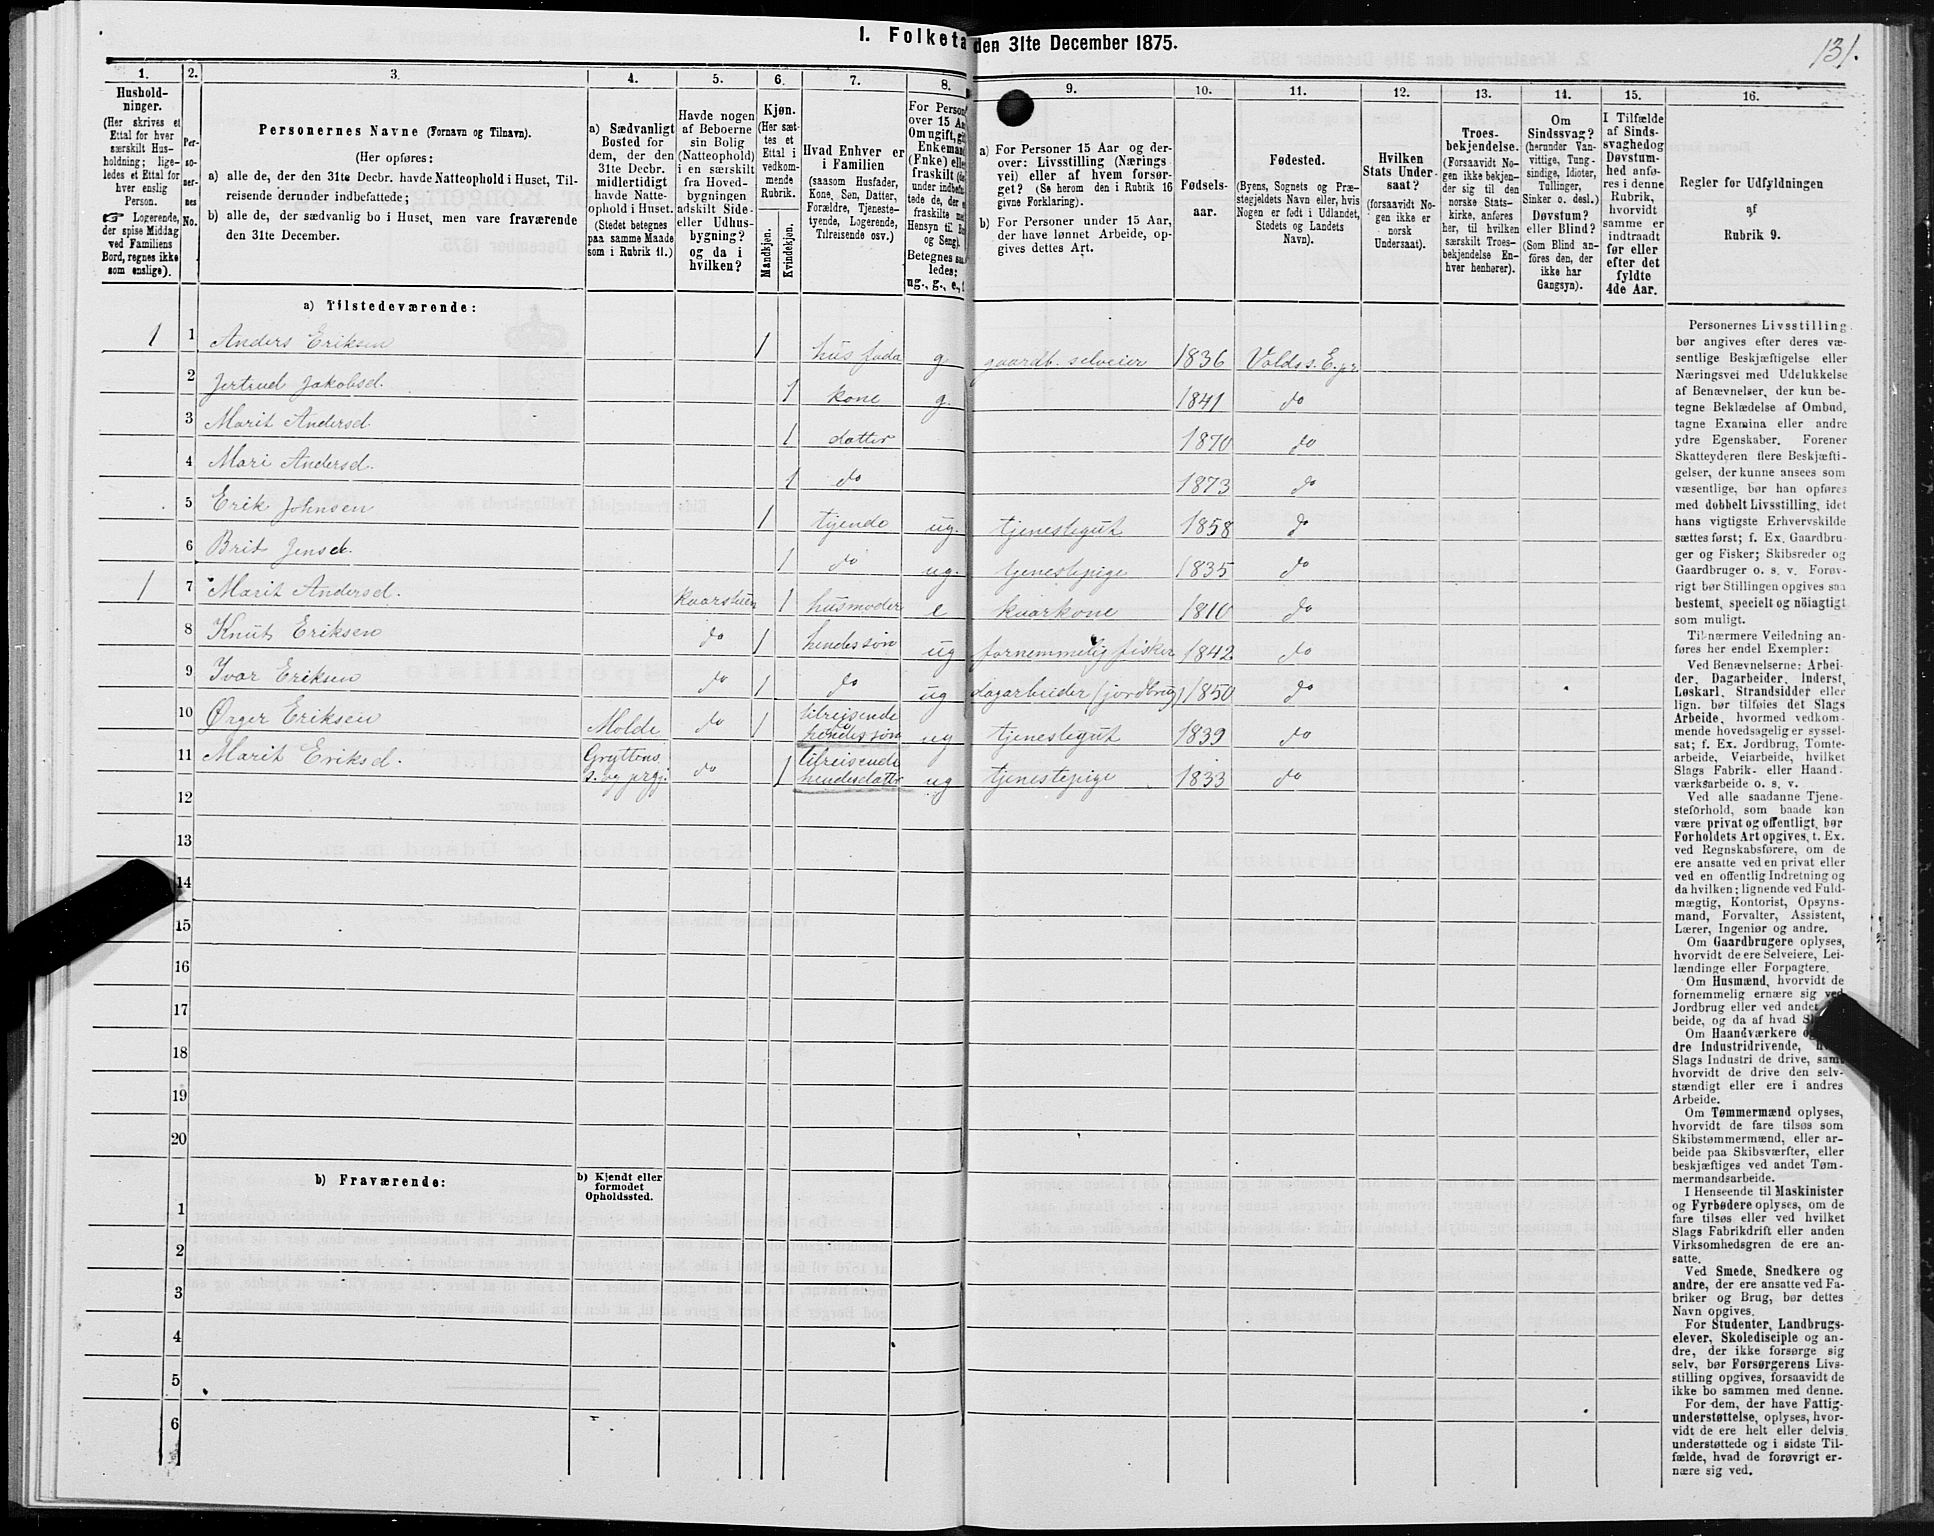 I. Folketa den 31te December 1875.
131.
1. 2. 3. 4. 5. 6. 7. 8. 9. 10. 11. 12. 13. 14. 15. 16.
Hushold-
ninger.
(Her skrives et
Ettal for hver
særskilt Hus-
holdning; lige-
ledes et Ettal for
hver enslig
Person.
☞ Logerende,
der spise Middag
ved Familiens
Bord, regnes ikke
som enslige).
Per-
so-
ner-
nes
No.
Personernes Navne (Fornavn og Tilnavn).
(Her opføres:
a) alle de, der den 31te Decbr. havde Natteophold i Huset, Til-
reisende derunder indbefattede;
b) alle de, der sædvanlig bo i Huset, men vare fraværende
den 31te December.
a) Sædvanligt
Bosted for
dem, der den
31te Decbr.
midlertidigt
havde Natte-
ophold i Huset.
(Stedet betegnes
paa samme Maade
som i Rubrik 11.)
Havde nogen
af Beboerne
sin Bolig
(Natteophold)
i en særskilt
fra Hoved-
bygningen
adskilt Side-
eller Udhus-
bygning?
og da i
hvilken?
Kjøn.
(Her sæt-
tes et
Ettal i
vedkom-
mende
Rubrik.
Mandkjøn.
Kvindekjøn.
Hvad Enhver er
i Familien
(saasom Husfader,
Kone, Søn, Datter,
Forældre, Tjeneste-
tyende, Logerende,
Tilreisende osv.)
For Person
over 15 Aa
Om ugift, gi
Enkeman
(Fnke) elle
fraskilt (de
under indbefa
tede de, der e
fraskilte me
Hensyn til Bo
og Seng).
Betegnes saa
ledes:
ug., g., e., f
a) For Personer 15 Aar og der-
over: Livsstilling (Nærings
vei) eller af hvem forsør-
get? (Se herom den i Rubrik 16
givne Forklaring).
b) For Personer under 15 Aar,
der have lønnet Arbeide, op-
gives dettes Art.
Fødsels-
aar.
Fødested.
(Byens, Sognets og Præ-
stegjeldets Navn eller, hvis
Nogen er født i Udlandet,
Stedets og Landets
Navn).
Hvilken
Stats Under-
saat?
(forsaavidt No-
gen ikke er
norsk
Undersaat).
Troes-
bekjendelse.
(Forsaavidt No-
gen ikke bekjen-
der sig til den
norske Stats-
kirke, anføres
her, til hvilken
særskilt Troes-
bekjendelse En-
hver henhører).
Om
Sindssvag?
(herunder Van-
vittige, Tung-
sindige, Idioter,
Tullinger,
Sinker o. desl.)
Døvstum?
eller Blind?
(Som Blind an-
føres den, der
ikke har
Gangsyn).
I Tilfælde
af Sinds-
svaghed og
Døvstum-
hed anfø-
res i denne
Rubrik,
hvorvidt
samme er
indtraadt
før eller
efter det
fyldte
4de Aar.
Regler for Udfyldningen
af
Rubrik 9.
a) Tilstedeværende:
1 1 Anders Eriksen 1 husfader g. gaardb. selveier 1836 Volds s. E. pr.
2 Jertrud Jakobsd. 1 kone g. 1841 do
3 Marit Andersd. 1 datter 1870 do
4 Mari Andersd. 1 do 1873 do
5 Erik Johnsen 1 tjende ug. tjenestegut 1858 do
6 Brit Jensd. 1 do ug. tjenestepige 1835 do
1 7 Marit Andersd. kaarstuen 1 husmoder e kaarkone 1810 do
8 Knut Eriksen do 1 hendes søn ug fornemmelig fisker 1842 do
9 Ivar Eriksen do 1 do ug dagarbeider (jordbrug) 1850 do
10 Ørger Eriksen Molde do 1 tilreisende do hendes søn ug tjenestegut 1839 do
11 Marit Eriksd. Gryttens s. og prgj. do 1 tilreisende hendes datter ug tjenestepige 1833 do
12
13
14
15
16
17
18
19
20
b) Fraværende:
b) Kjendt eller
formodet
Opholdssted.
1
2
3
4
5
6
Personernes Livsstilling
bør angives efter deres væ-
sentlige Beskjæftigelse eller
Næringsvei med Udelukkelse
af Benævnelser, der kun be-
tegne Beklædelse af Ombud,
tagne Examina eller andre
ydre Egenskaber. Forener
Skatteyderen flere Beskjæfti-
gelser, der kunne ansees som
væsentlige, bør han opføres
med dobbelt Livsstilling, idet
hans vigtigste Erhvervskilde
sættes først; f. Ex. Gaardbru-
ger og Fisker; Skibsreder og
Gaardbruger o. s. v. Forøv-
rigt bør Stillingen opgives saa
bestemt, specielt og nöiagtigt
som muligt.
Til nærmere Veiledning an-
føres her endel Exempler:
Ved Benævnelserne: Arbei-
der, Dagarbeider, Inderst,
Løskarl, Strandsidder eller
lign. bør tilføies det Slags
Arbeide, hvormed vedkom-
mende hovedsagelig er syssel-
sat; f. Ex. Jordbrug, Tomte-
arbeide, Veiarbeide, hvilket
Slags Fabrik- eller Haand-
værksarbeide o. s. v.
Ved alle saadanne Tjene-
steforhold, som baade kan
være privat og offentligt, bør
Forholdets Art opgives, t. Ex.
ved Regnskabsførere, om de
ere ansatte ved en privat eller
ved en offentlig Indretning og
da hvilken; lignende ved Fuld-
mægtig, Kontorist, Opsyns-
mand, Forvalter, Assistent,
Lærer, Ingeniør og andre.
Om Gaardbrugere oplyses,
hvorvidt de ere Selveiere, Lei-
lændinge eller Forpagtere.
Om Husmænd, hvorvidt de
fornemmelig ernære sig ved
Jordbrug eller ved andet
beide, og da af hvad
Om Haandværkere
dre Industridrivende,
Slags Industri de drive, samt
hvorvidt de drive den selv-
stændigt eller ere i andres
Arbeide.
Om Tømmermænd oplyses,
hvorvidt de fare tilsøs som
Skibstømmermænd, eller ar-
beide paa Skibsværfter, eller
beskjæftiges ved andet Tøm-
mermandsarbeide.
I Henseende til Maskinister
og Fyrbødere oplyses, om de
fare tilsøs eller ved hvilket
Slags Fabrikdrift eller anden
Virksomhedsgren de ere an-
satte.
Ved Smede, Snedkere og
andre, der ere ansatte ved Fa-
briker og Brug, bør dettes
Navn opgives.
For Studenter, Landbrugs-
elever, Skoledisciple og an-
dre, der ikke forsørge sig
selv, bør Forsørgerens Livs-
stilling opgives, forsaavidt de
ikke bo sammen med denne.
For dem, der have Fattig-
understøttelse, oplyses, hvor-
vidt de ere helt eller delvis
understøttede og i sidste Til-
fælde, hvad de forøvrigt er-
nære sig ved.